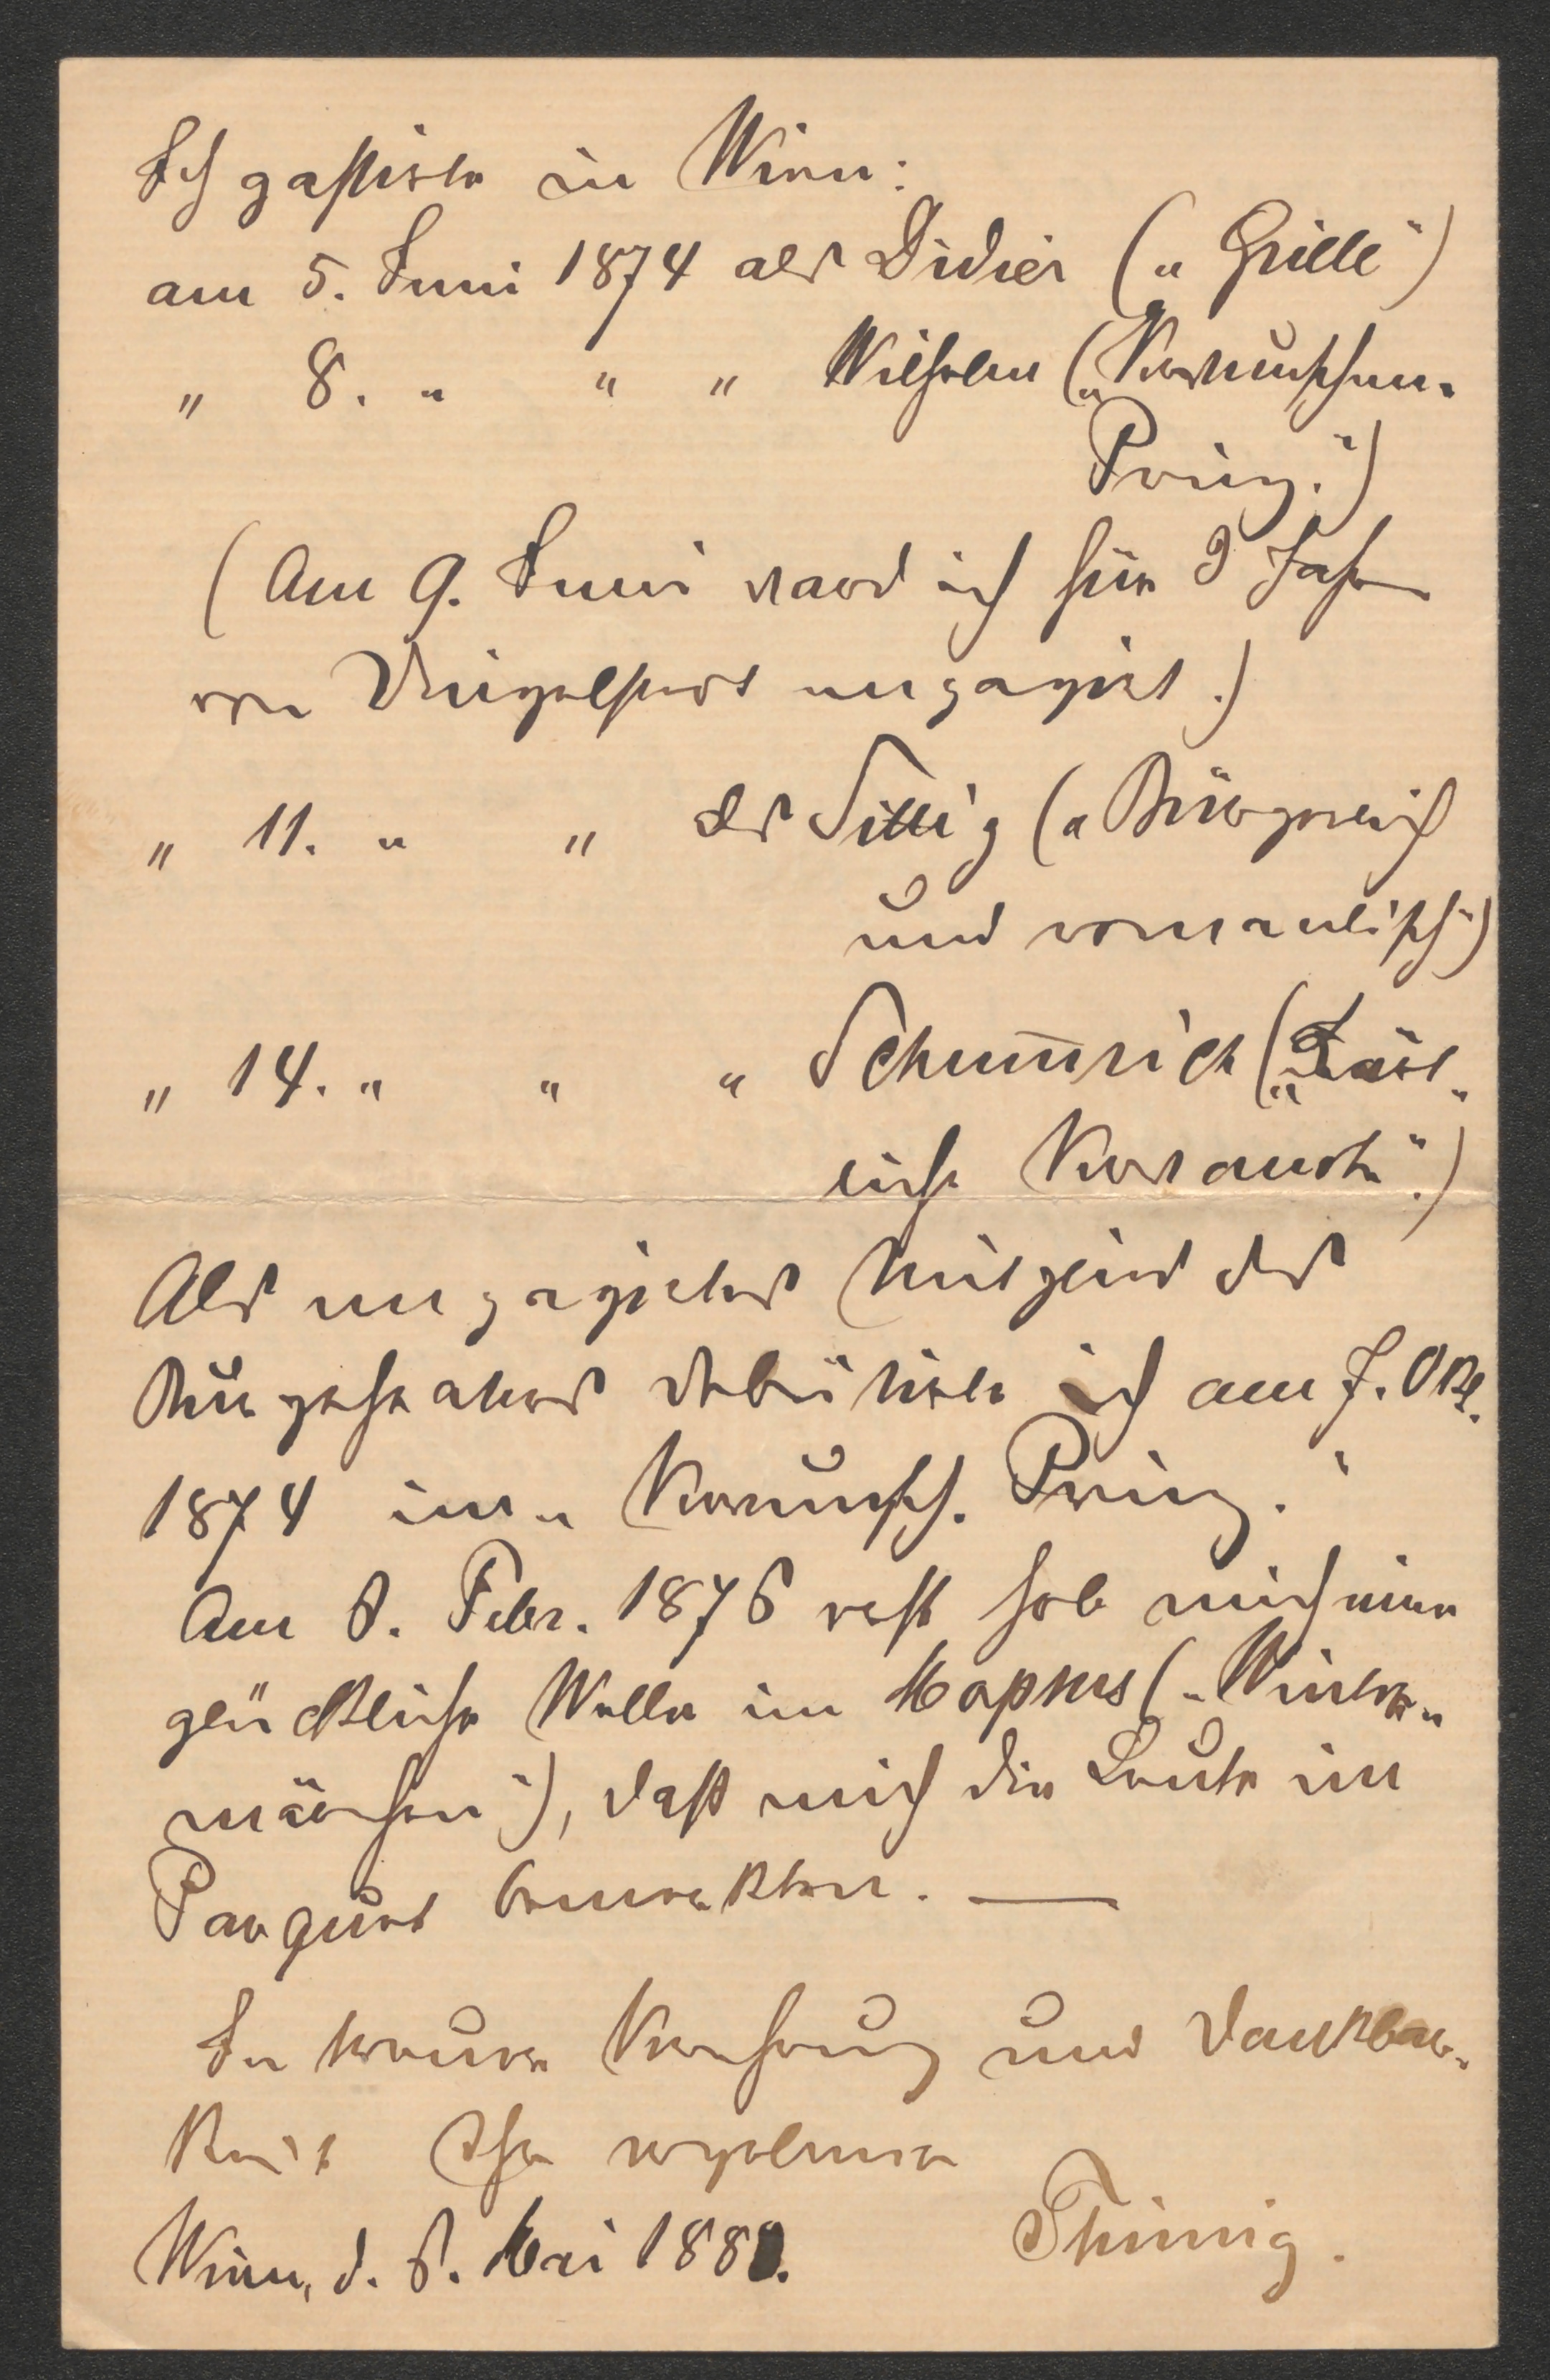 Ich gastirte in Wien:
am 5. Juni 1874 als Didier („Grille“)
„ 8. „ „ „ Wilhelm („Verwunschen.
Prinz.“)
(Am 9. Juni ward ich für 3 Jahre
von Dingelstedt engagirt.)
„ 11. „ „ als Sittig („Bürgerlich
und romantisch“)
„ 14. „ „ „ Schummrich („Zärt„
liche Verwandte“.)
Als engagirtes Mitglied des
Burgtheaters debütirte ich am 7. Okt.
1874 im „Verwunsch. Prinz.“
Am 6. Febr. 1876 erst hob mich eine
glückliche Welle im Mopsus („Winter„
märchen“), daß mich die Leute im
Parquet bemerkten. —
In treuer Verehrung und Dankbar„
keit Ihr ergebener
Wien, d. 6. Mai 188 Thimig.